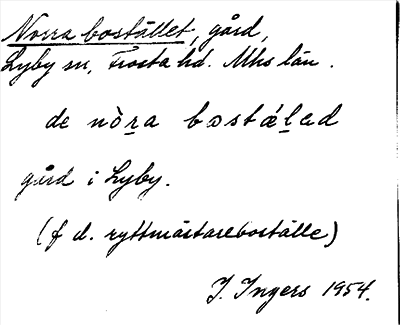 Norra bostället, gård,
Lyby sn, Frosta hd. Mhs län.
de nò̱ra bostǽḻad
gård i Lyby.
(f d. ryttmästareboställe)
J. Ingers 1954.